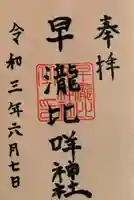 奉拝
早瀧比咩神社
令和三年六月七日